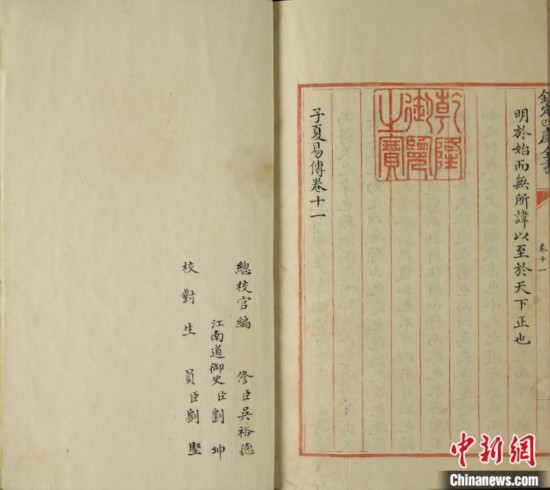 欽定四庫全書
卷十一
明於始而無所諱以至於天下正也
乾隆御覽之寶
子夏易傳卷十一
總校官編 修臣吳裕德
江南道御史臣劉 坤
校 對 生 員臣劉 堅
中新网
Chinanews.com